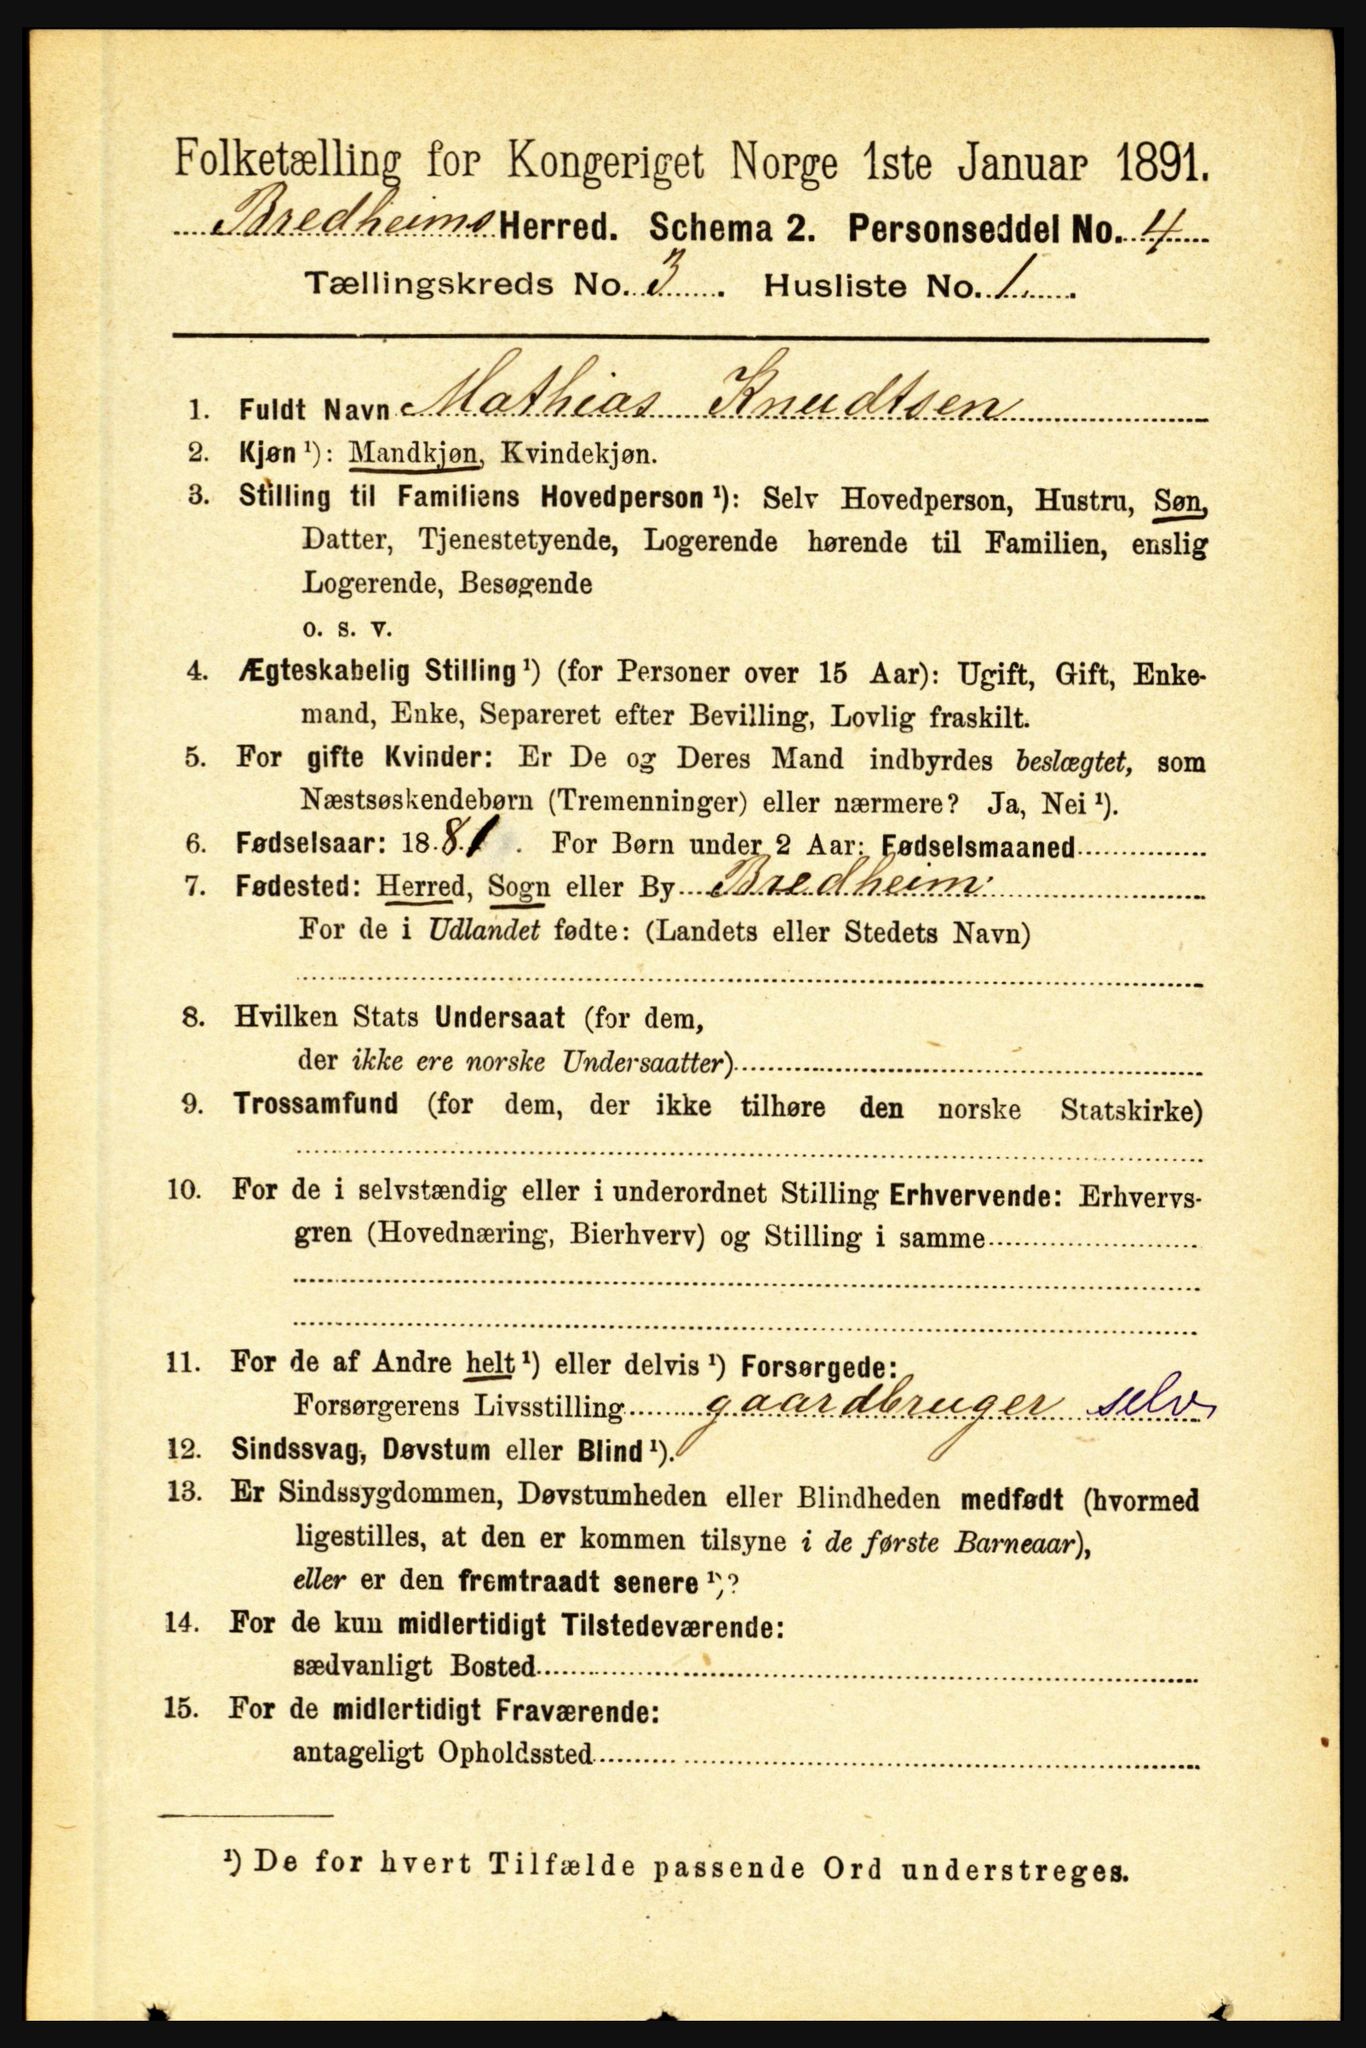 Folketælling for Kongeriget Norge 1ste Januar 1891.
Bredheims Herred. Schema 2. Personseddel No. 4
Tællingskreds No. 3. Husliste No. 1.
1. Fuldt Navn Mathias Knudtsen
2. Kjøn ¹): Mandkjøn, Kvindekjøn.
3. Stilling til Familiens Hovedperson ¹): Selv Hovedperson, Hustru, Søn,
Datter, Tjenestetyende, Logerende hørende til Familien, enslig
Logerende, Besøgende
o. s. v.
4. Ægteskabelig Stilling ¹) (for Personer over 15 Aar): Ugift, Gift, Enke-
mand, Enke, Separeret efter Bevilling, Lovlig fraskilt.
5. For gifte Kvinder: Er De og Deres Mand indbyrdes beslægtet, som
Næstsøskendebørn (Tremenninger) eller nærmere? Ja, Nei ¹).
6. Fødselsaar: 1881. For Børn under 2 Aar: Fødselsmaaned
7. Fødested: Herred, Sogn eller By Bredheim
For de i Udlandet fødte: (Landets eller Stedets Navn)
8. Hvilken Stats Undersaat (for dem,
der ikke ere norske Undersaatter)
9. Trossamfund (for dem, der ikke tilhøre den norske Statskirke)
10. For de i selvstændig eller i underordnet Stilling Erhvervende: Erhvervs-
gren (Hovednæring, Bierhverv) og Stilling i samme
11. For de af Andre helt ¹) eller delvis ¹) Forsørgede:
Forsørgerens Livsstilling gaardbruger selv
12. Sindssvag, Døvstum eller Blind ¹).
13. Er Sindssygdommen, Døvstumheden eller Blindheden medfødt (hvormed
ligestilles, at den er kommen tilsyne i de første Barneaar),
eller er den fremtraadt senere ¹)?
14. For de kun midlertidigt Tilstedeværende:
sædvanligt Bosted
15. For de midlertidigt Fraværende:
antageligt Opholdssted
¹) De for hvert Tilfælde passende Ord understreges.